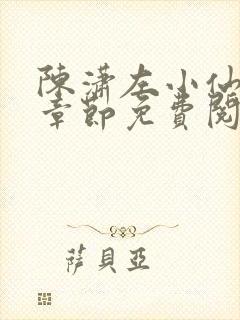 陳瀟左小仙
章節免費閱
薩貝亞